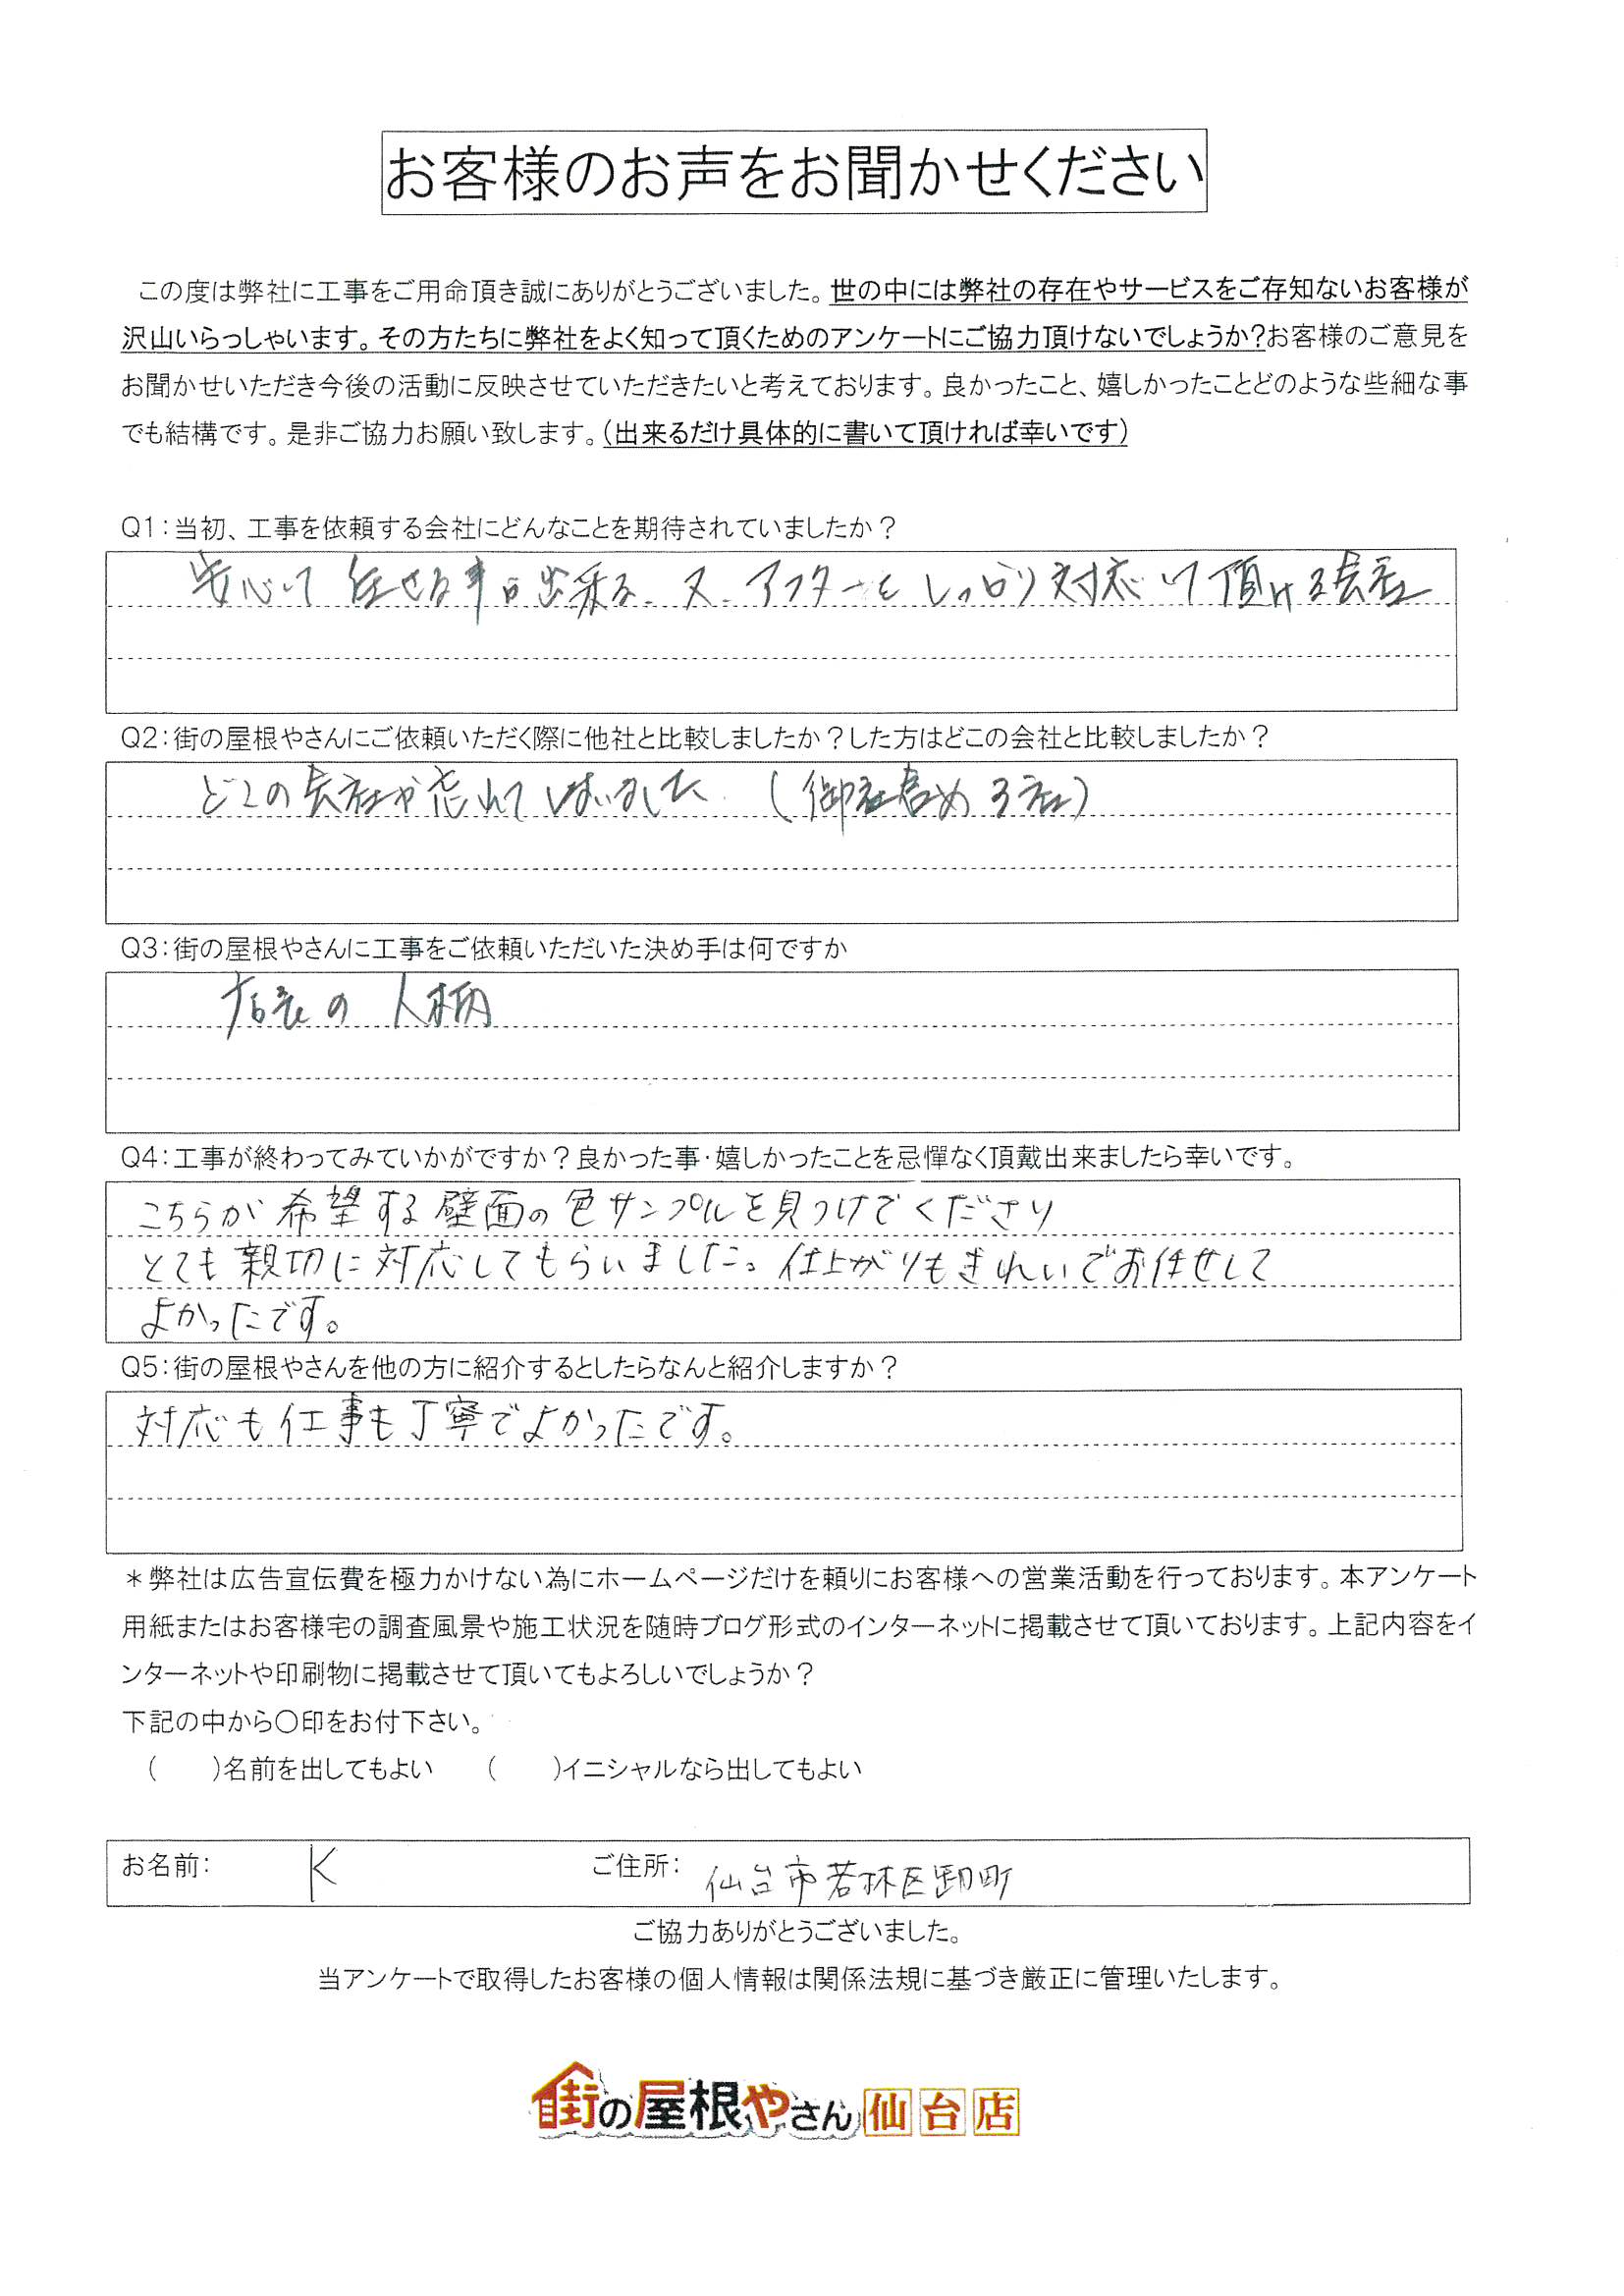 お客様のお声をお聞かせください
この度は弊社に工事をご用命頂き誠にありがとうございました。世の中には弊社の存在やサービスをご存知ないお客様が
沢山いらっしゃいます。その方たちに弊社をよく知って頂くためのアンケートにご協力頂けないでしょうか?お客様のご意見を
お聞かせいただき今後の活動に反映させていただきたいと考えております。良かったこと、嬉しかったことどのような些細な事
でも結構です。是非ご協力お願い致します。(出来るだけ具体的に書いて頂ければ幸いです)
Q1:当初、工事を依頼する会社にどんなことを期待されていましたか?
安心して任せる事が出来る、又、アフターもしっかり対応して頂ける会社
Q2:街の屋根やさんにご依頼いただく際に他社と比較しましたか?した方はどこの会社と比較しましたか?
どこの会社か忘れてしまいました (御社含め3社)
Q3:街の屋根やさんに工事をご依頼いただいた決め手は何ですか
店長の人柄
Q4:工事が終わってみていかがですか?良かった事・嬉しかったことを忌憚なく頂戴出来ましたら幸いです。
こちらが希望する壁面の色サンプルを見つけてくださり
とても親切に対応してもらいました。仕上がりもきれいでお任せして
よかったです。
Q5:街の屋根やさんを他の方に紹介するとしたらなんと紹介しますか?
対応も仕事も丁寧でよかったです。
*弊社は広告宣伝費を極力かけない為にホームページだけを頼りにお客様への営業活動を行っております。本アンケート
用紙またはお客様宅の調査風景や施工状況を随時ブログ形式のインターネットに掲載させて頂いております。上記内容をイ
ンターネットや印刷物に掲載させて頂いてもよろしいでしょうか?
下記の中から〇印をお付下さい。
(　　)名前を出してもよい　　(　　)イニシャルなら出してもよい
お名前: K ご住所: 仙台市若林区卸町
ご協力ありがとうございました。
当アンケートで取得したお客様の個人情報は関係法規に基づき厳正に管理いたします。
街の屋根やさん仙台店